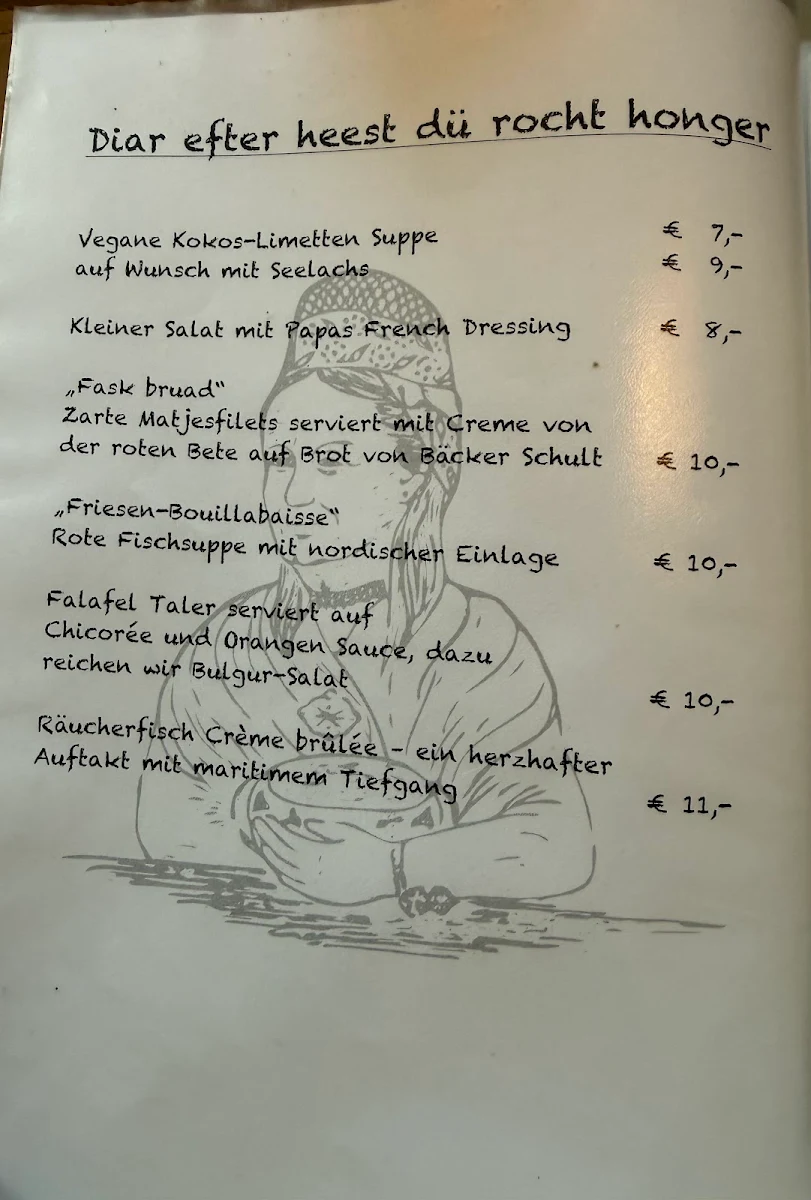 Diar efter heest dü rocht honger
Vegane Kokos-Limetten Suppe € 7,-
auf Wunsch mit Seelachs € 9,-
Kleiner Salat mit Papas French Dressing € 8,-
„Fask bruad“
Zarte Matjesfilets serviert mit Creme von
der roten Bete auf Brot von Bäcker Schult € 10,-
„Friesen-Bouillabaisse“
Rote Fischsuppe mit nordischer Einlage € 10,-
Falafel Taler serviert auf
Chicorée und Orangen Sauce, dazu
reichen wir Bulgur-Salat € 10,-
Räucherfisch Crème brûlée - ein herzhafter
Auftakt mit maritimem Tiefgang € 11,-